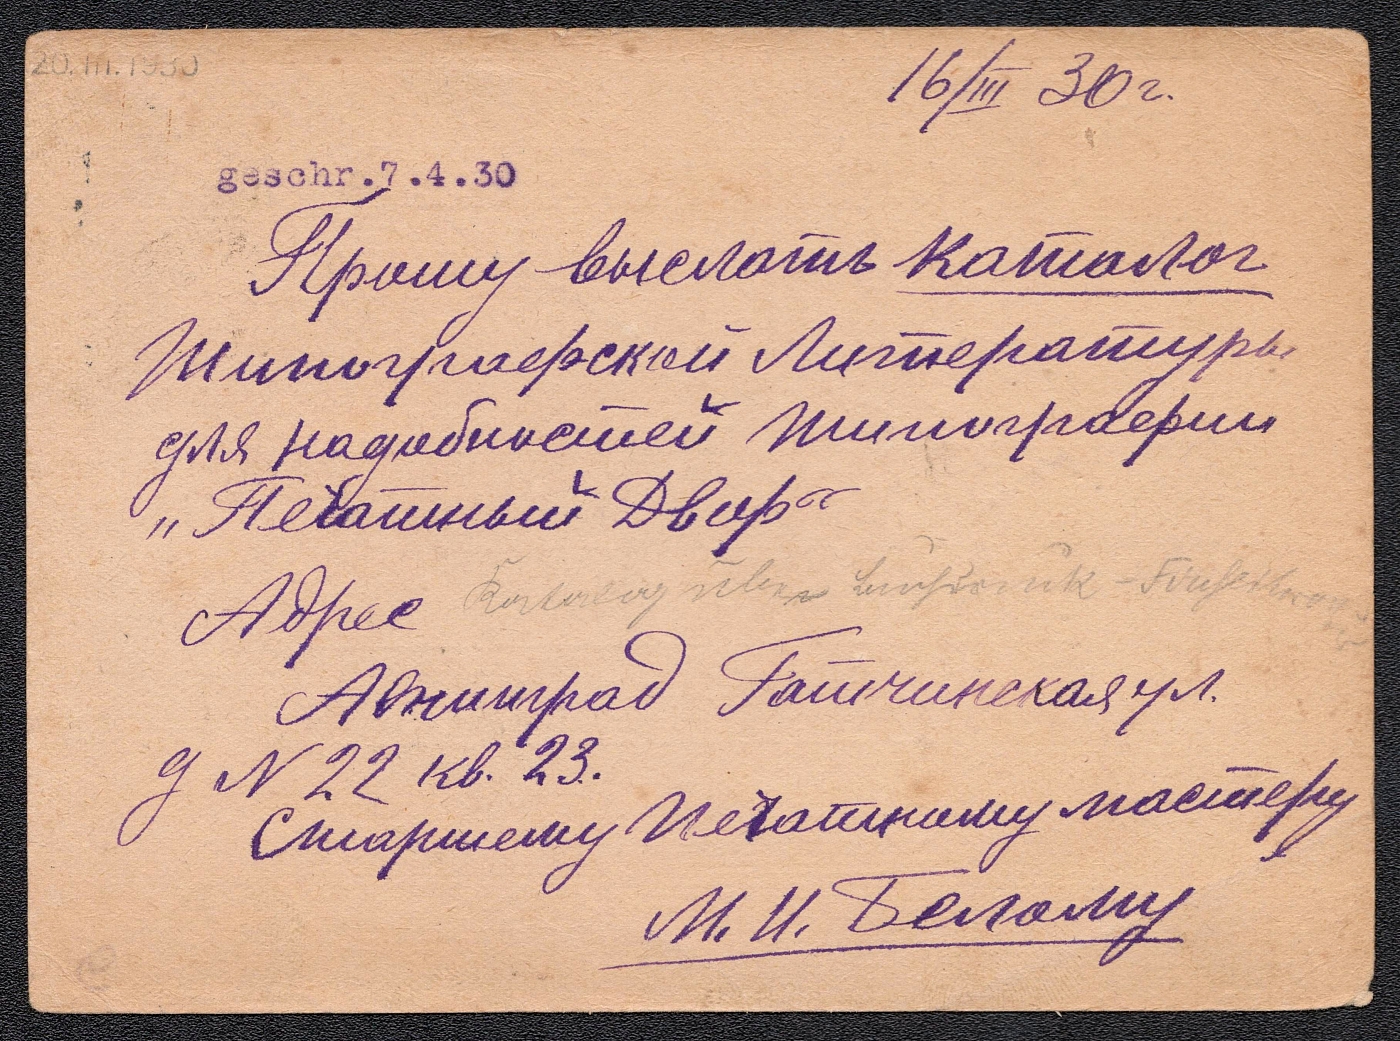 20.III.1930
16/III 30 г.
geschr.7.4.30
Прошу выслать каталог
Типографской Литературы
для надобностей Типографии
„Печатный Двор“
Адрес
Katalog über
Ленинград Гатчинская ул.
д N 22 кв. 23.
Старшему Печатному мастеру
М. И. Белому